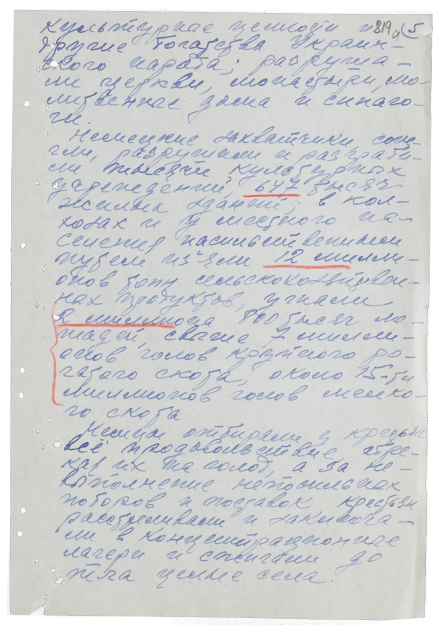 культурные ценности и 819а (5
другие богатства Украин-
ского народа; разруша-
ли церкви, монастыри, мо-
литвенные дома и синаго-
ги.
Немецкие захватчики сож-
гли, разрушили и разграби-
ли тысячи культурных
учреждений, 647 тысяч
жилых зданий. в кол-
хозах и у местного на-
селения насильственным
путем из'яли 12 милли-
онов тонн сельскохозяйствен-
ных продуктов, угнали
2 миллиона 800 тысяч ло-
шадей, свыше 7 милли-
онов голов крупного ро-
гатого скота, около 15-ти
миллионов голов мелко-
го скота
Немцы отбирали у крестьян
всё продовольствие обре-
кая их на голод, а за не-
выполнение непосильных
поборов и поставок крестьян
расстреливали и заключа-
ли в концентрационные
лагери и сжигали до
тла целые села.